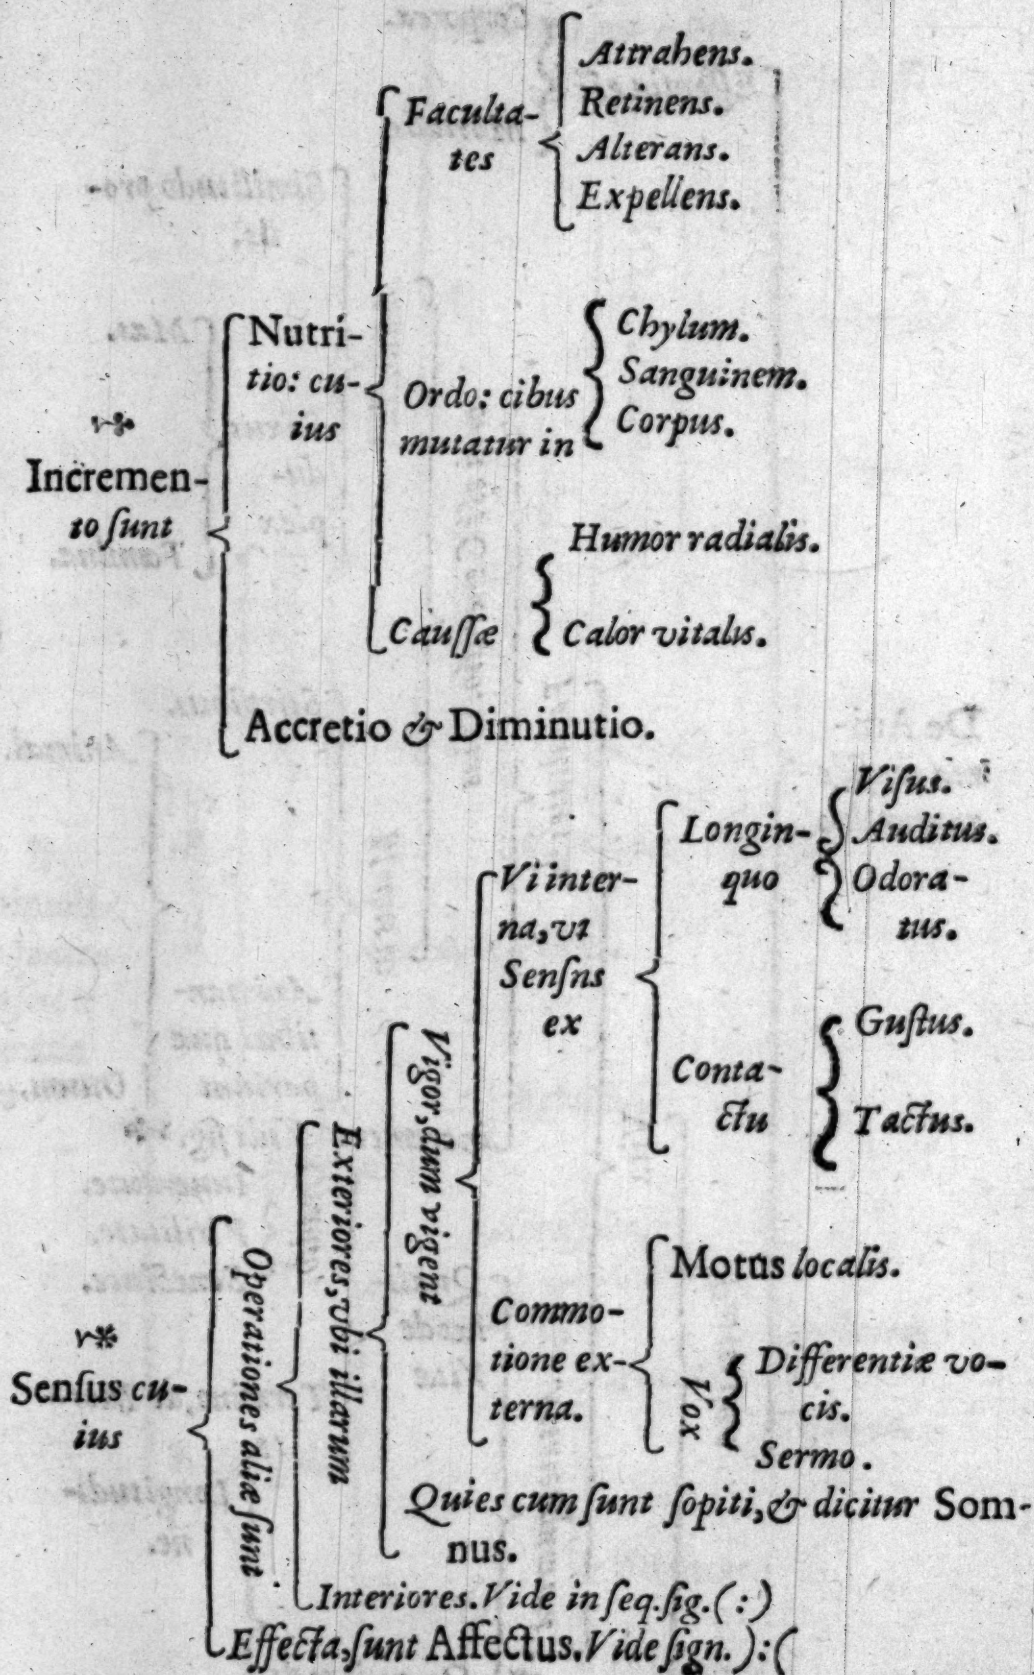 Attrahens.
Faculta-
Retinens.
tes
Alterans.
Expellens.
Nutri-
tio: cu-
ius
Ordo: cibus
mutatur in
Chylum.
Sanguinem.
Corpus.
Incremen-
to ſunt
Humor radialis.
Cauſſæ
Calor vitalis.
Accretio & Diminutio.
Senſus cu-
ius
Operationes aliæ ſunt
Exteriores, vbi illarum
Vigor, dum vigent
Vi inter-
na, vt
Senſns
ex
Longin-
quo
Viſus.
Auditus.
Odora-
tus.
Conta-
ctu
Guſtus.
Tactus.
Commo-
tione ex-
terna.
Motus localis.
Vox
Differentiæ vo-
cis.
Sermo.
Quies cum ſunt ſopiti, & dicitur Som-
nus.
Interiores. Vide in ſeq. ſig. (:)
Effecta, ſunt Affectus. Vide ſign. ):(